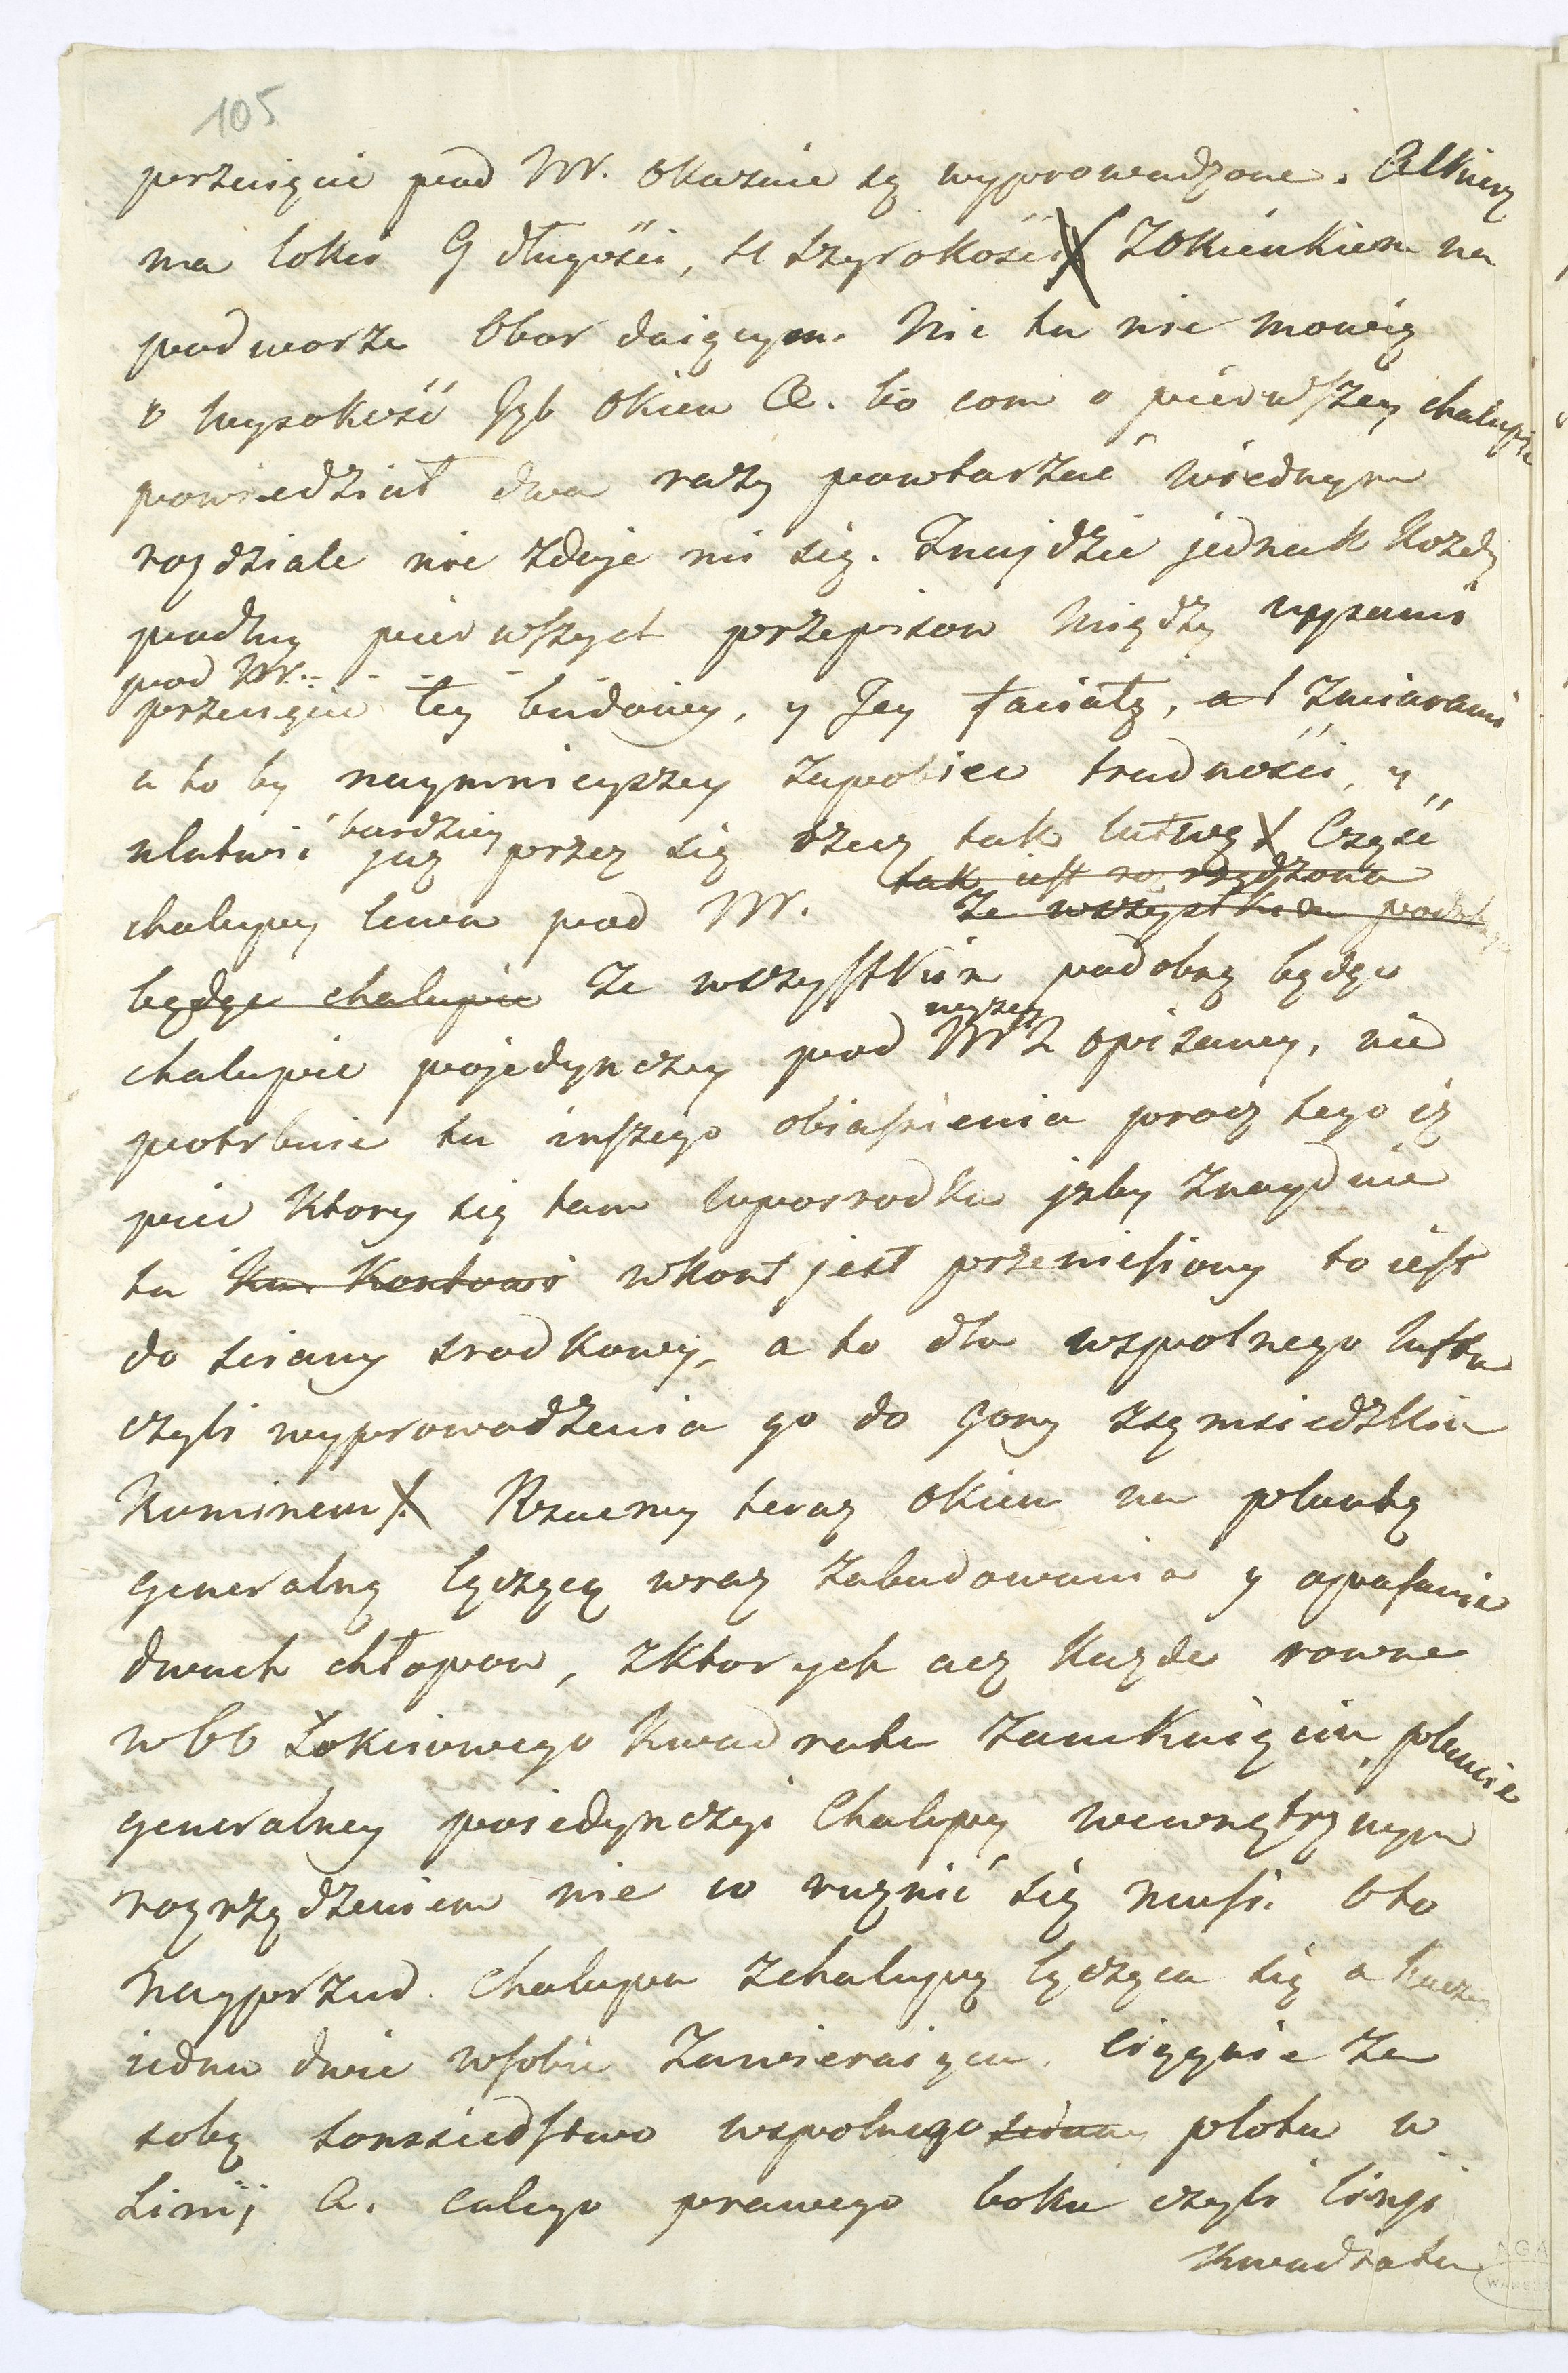 105
przecięcie pod Nr. okaznie są wyprowadzone. Alkierz
ma łokci 9 długości, 4 szyrokości Zokienkiem na
podworze Obor daiącym. Nic tu nie mowię
o wysokość Jzb Okien &. bo com o pierwszey chałupie
powiedział dwa razy powtarzać wiednym
rozdziale nie zdaje mi się. Znajdzie jednak kozdy
podług pierwszych przepisow między rysami
pod Nr. - - - -
przecięcie tey budowy, y Jey faciatę, ad Zmiarami
a to by naymnieyszey zapobiec trudności, y
bardziey
ułatwić juz przez się rzecz tak łatwą Część
tak iest rozrządzona
chałupy lewa pod Nr. Ze wszystkiem podobną
będąc chałupie Ze wszystkim podobną będąc
wyzey
chałupie pojedynczey pod Nr 2 opisaney, nie
potrbuie tu inszego obiaśnienia procz tego iz
piec ktory się tam wposrodku jzby znayduie
tu ku kontowi wkont jest przeniesiony to iest
do sciany srodkowy, a to dla wspolnego luftu
czyli wyprowadzenia go do gory zsąmsiedzkim
kominem. Rzucmy teraz okiem na plantę
generalną łączącą wraz zabudowania y opasanie
dwuch chłopow, zktorych acz kazde rowne
w 60 Łokciowego kwadratu zamknięciu, plancie
generalney poiedynczyi Chałupy wewnętrznym
rozrządzeniem nie co ruznić się musi. Oto
nayprzud. Chałupa zchałupą łącząca się a raczey
iedna dwie wsobie zawieraiąca, ciągnie za
sobą somsiedstwo wspolnego sciany płotu w
Linij A. całego prawego boku czyli linji
kwadratu